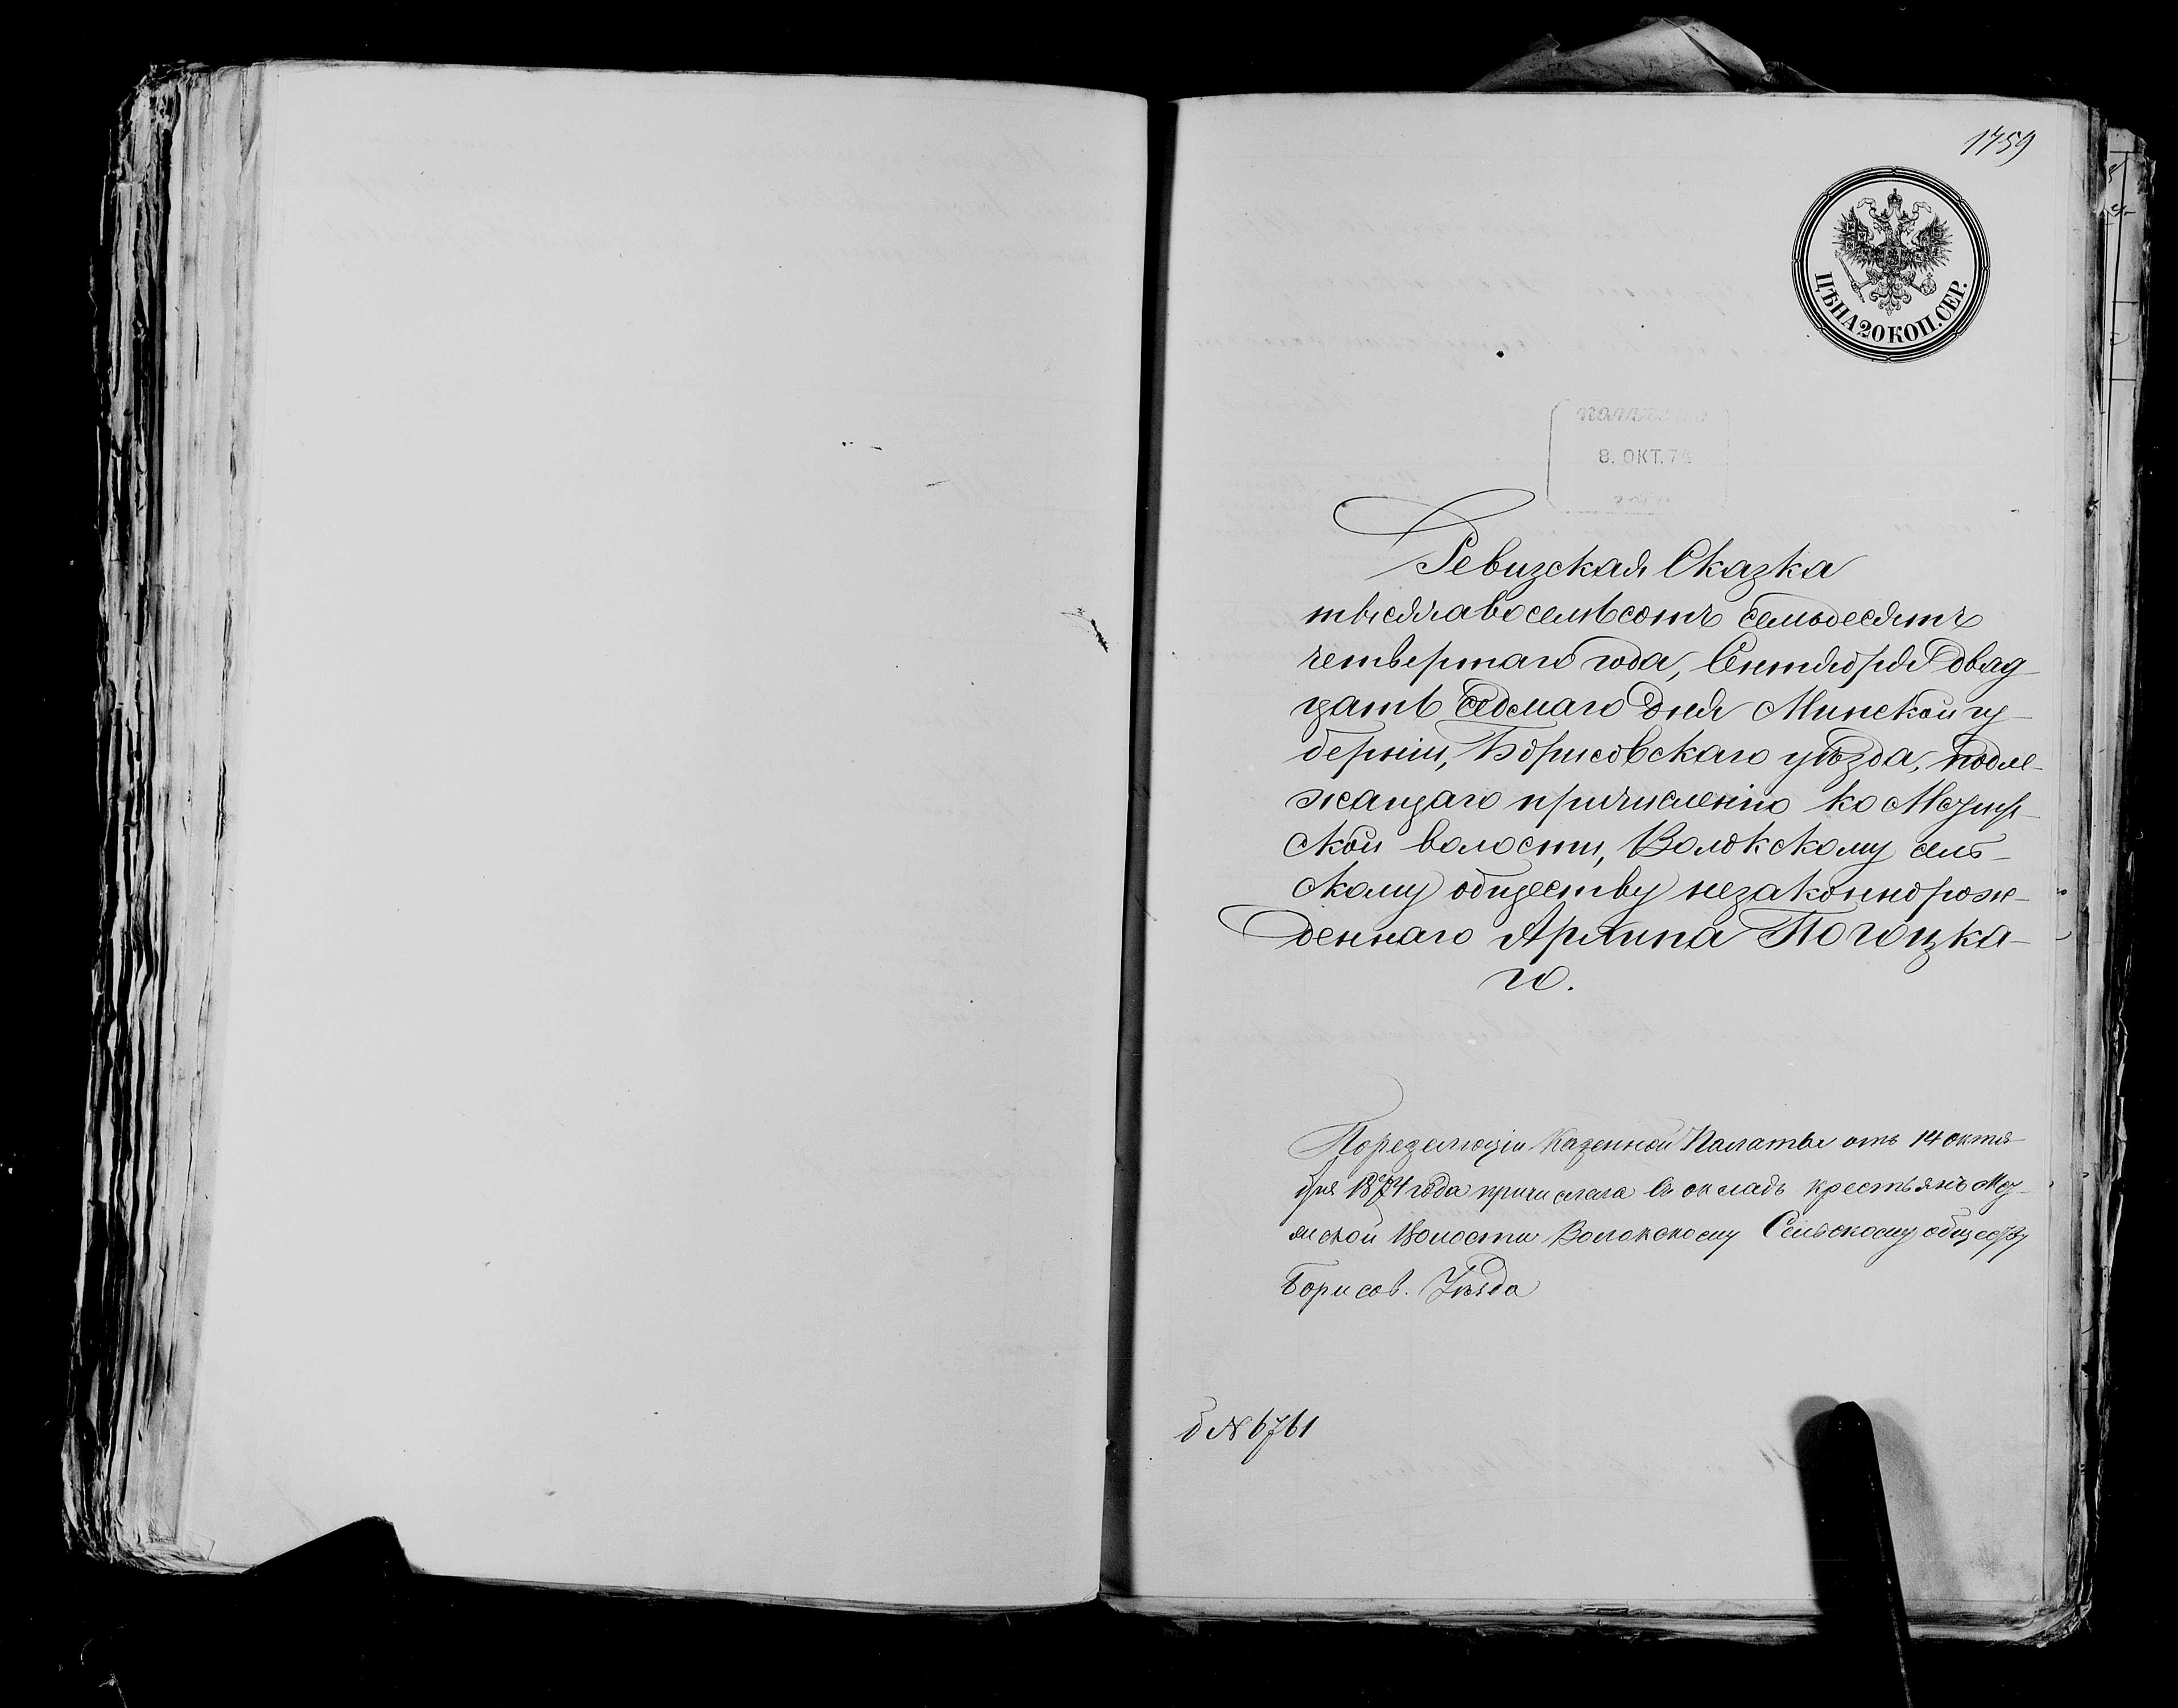 1759
ЦѢНА 20 КОП. СЕР.
ПОЛУЧЕНО
8. ОКТ. 74
Ревизская Сказка
тысяча восемьсотъ семьдесятъ
четвертаго года, Сентября двад-
цать седмаго дня Минской гу-
берніи, Борисовскаго уѣзда, подле-
жащаго причисленію ко
ской волости, Волокскому сель-
скому обществу незаконнорож-
деннаго Погоцка-
го.
По резолюціи Казенной Палаты отъ 14 октя-
бря 1874 года причислена въ окладъ крестьянъ
Волости Волокскому Сельскому обществу
Борисов. Уѣзда
№ 6761